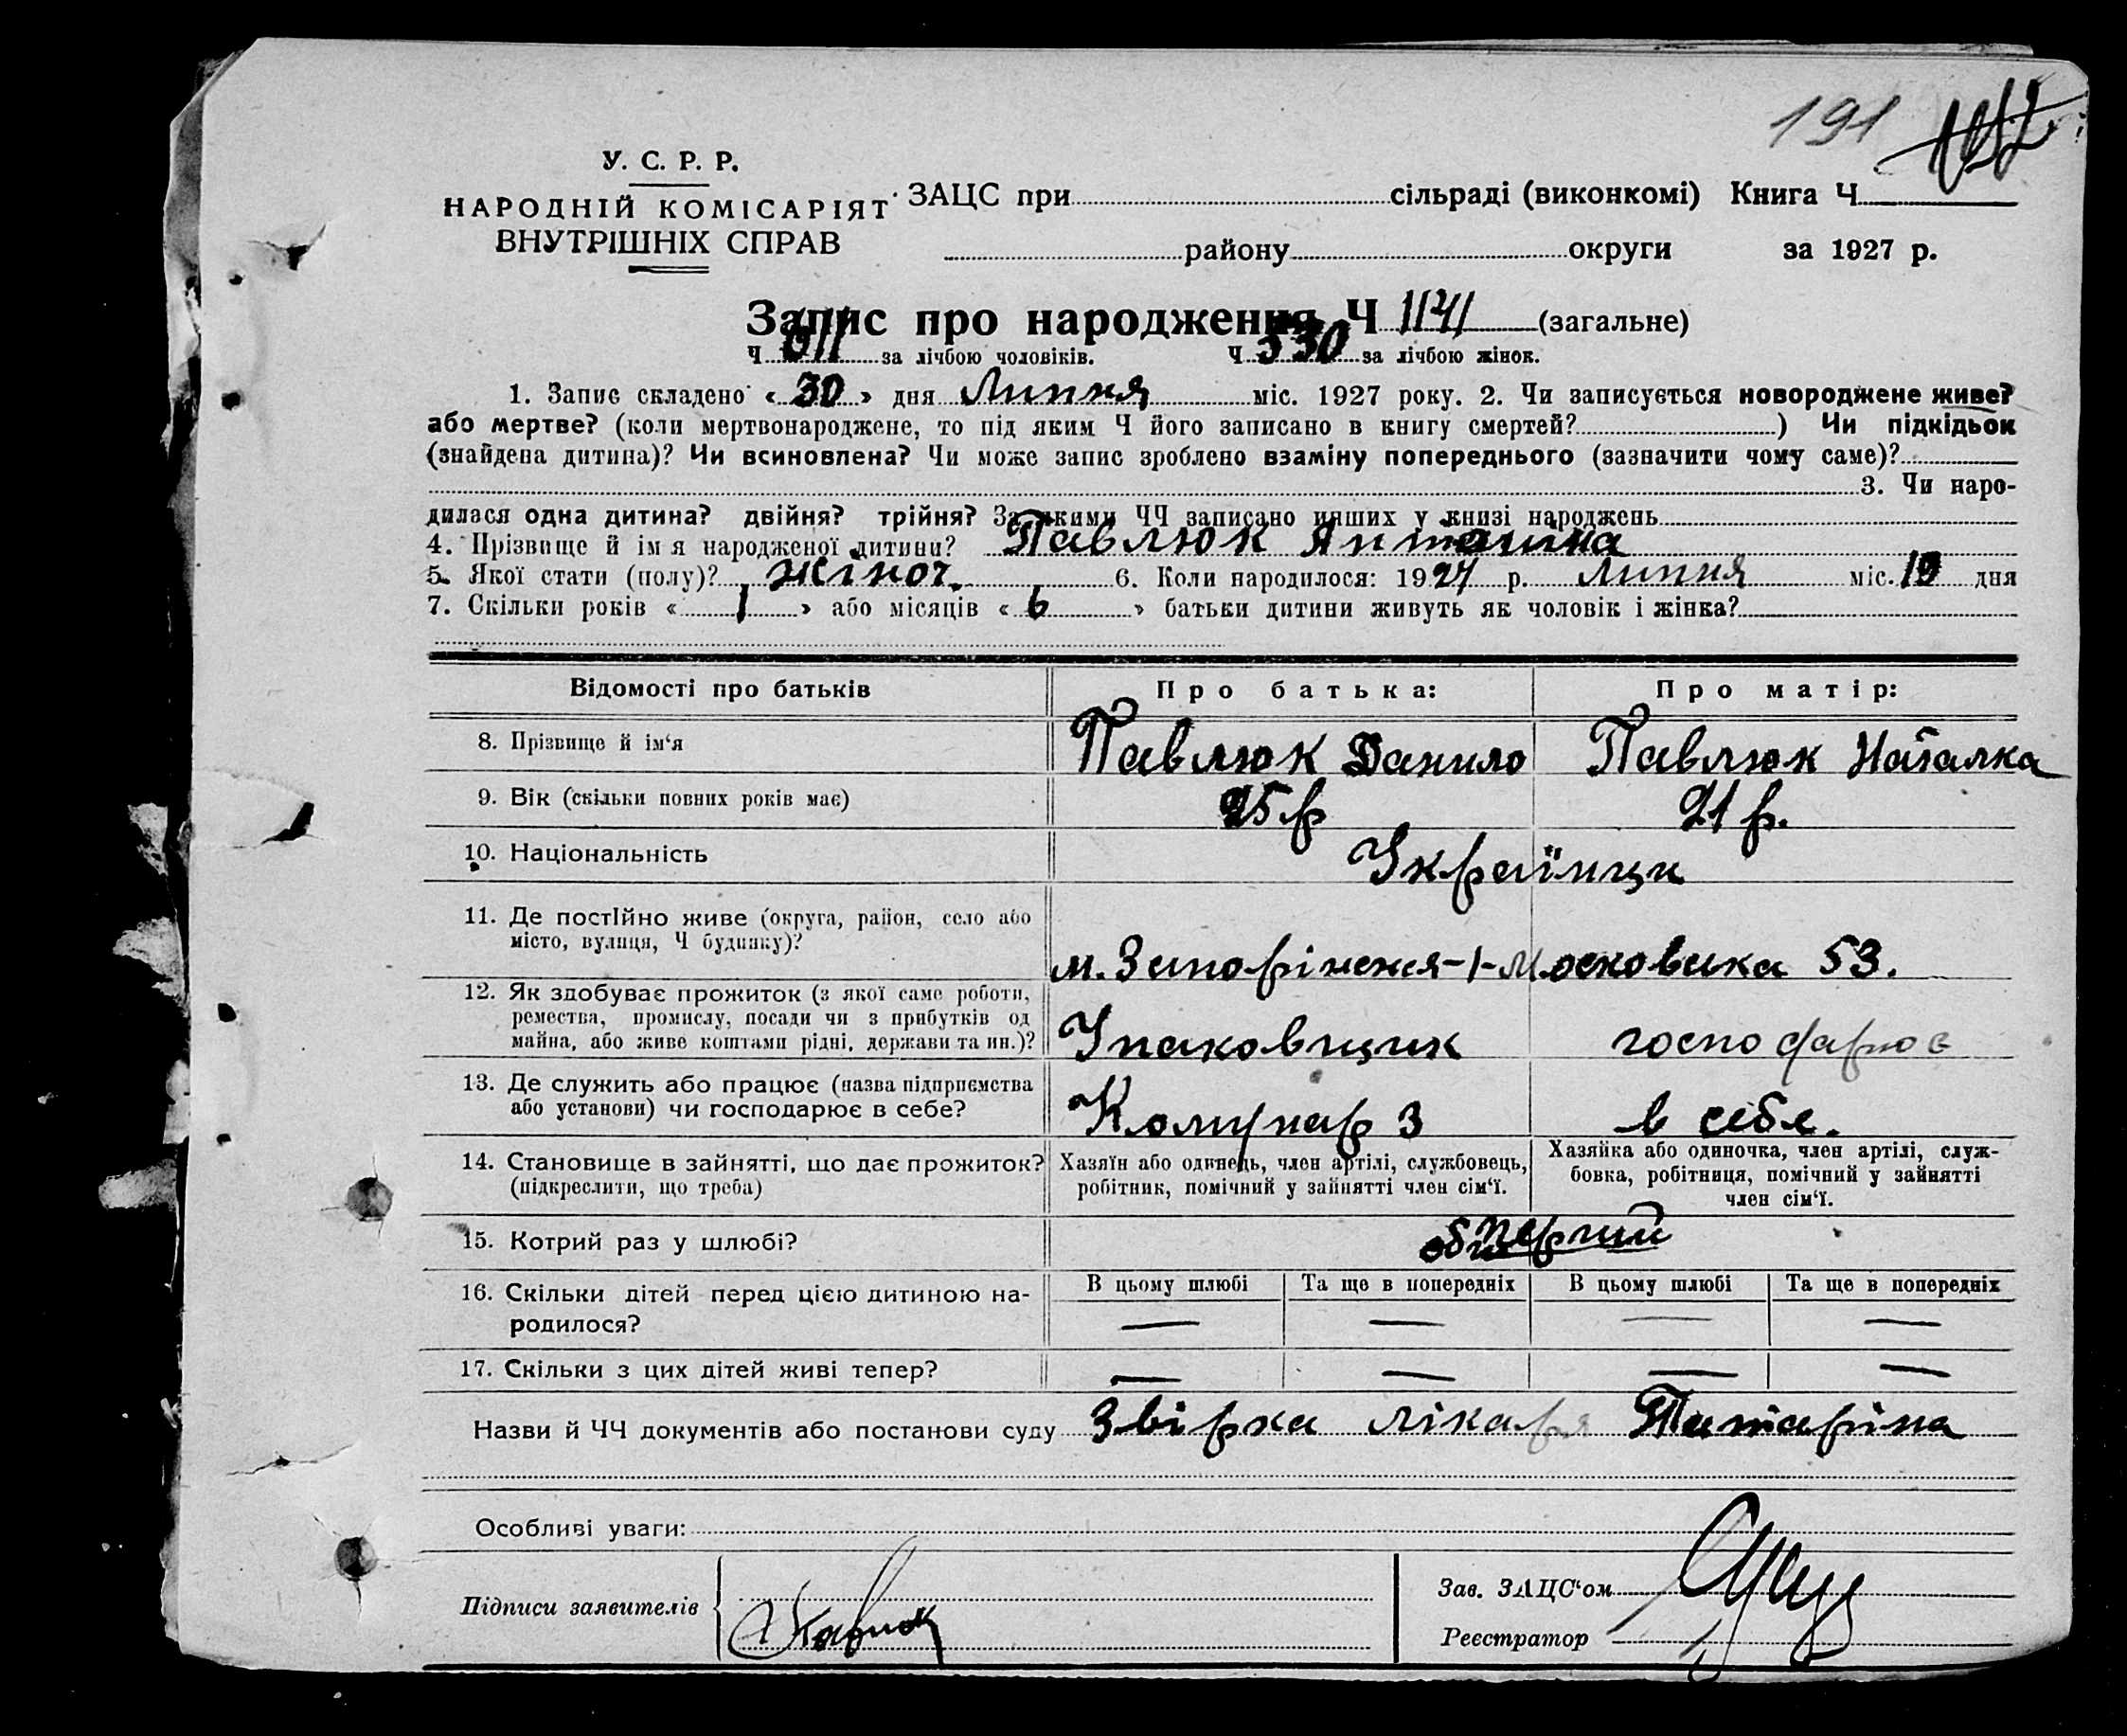 191
У. С. Р. Р.
НАРОДНІЙ КОМІСАРІЯТ
ВНУТРІШНІХ СПРАВ
ЗАЦС при сільраді (виконкомі) Книга Ч
району округи за 1927 р.
Запис про народження Ч 1141 (загальне)
Ч 611 за лічбою чоловіків. Ч 530 за лічбою жінок.
1. Запис складено « 30 » дня Липня міс. 1927 року. 2. Чи записується новороджене живе?
або мертве? (коли мертвонароджене, то під яким Ч його записано в книгу смертей? ) Чи підкідьок
(знайдена дитина)? Чи всиновлена? Чи може запис зроблено взаміну попереднього (зазначити чому саме)?
3. Чи наро-
дилася одна дитина? двійня? трійня? За якими ЧЧ записано инших у книзі народжень
4. Прізвище й ім я народженої дитини? Павлюк Антоніна
5. Якої стати (полу)? жіноч. 6. Коли народилося: 1927 р. Липня міс. 19 дня
7. Скільки років « 1 » або місяців « 6 » батьки дитини живуть як чоловік і жінка?
Відомості про батьків Про батька: Про матір:
8. Прізвище й ім‘я Павлюк Данило Павлюк Наталка
9. Вік (скільки повних років має) 25 р 21 р.
10. Національність Українци
11. Де постійно живе (округа, район, село або
місто, вулиця, Ч будинку)? м. Запоріжжя-1-Московська 53.
12. Як здобуває прожиток (з якої саме роботи,
ремества, промислу, посади чи з прибутків од
майна, або живе коштами рідні, держави та ин.)? Упаковщик господарює
13. Де служить або працює (назва підприємства
або установи) чи господарює в себе? Комунар З в себе.
14. Становище в зайнятті, що дає прожиток?
(підкреслити, що треба)
Хазяїн або одинець, член артілі, службовець,
робітник, помічний у зайнятті член сім‘ї.
Хазяйка або одиночка, член артілі, служ-
бовка, робітниця, помічний у зайнятті
член сім‘ї.
15. Котрий раз у шлюбі? перший
16. Скільки дітей перед цією дитиною на-
родилося?
В цьому шлюбі Та ще в попередніх В цьому шлюбі Та ще в попередніх
— — — —
17. Скільки з цих дітей живі тепер? — — — —
Назви й ЧЧ документів або постанови суду Звірка лікаря Татаріна
Особливі уваги:
Підписи заявителів
Зав. ЗАЦС‘ом
Реєстратор